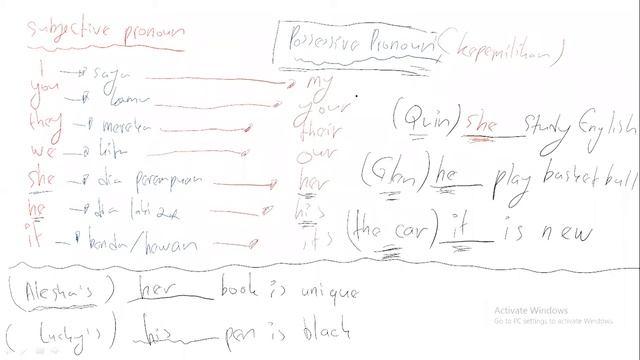 Subjective pronoun
Possessive Pronoun (kepemilikan)
I → saya → my
you → kamu → your
they → mereka → their
we → kita → our
she → dia perempuan → her
he → dia laki2x → his
it → benda/hewan → it's
(Quin) she study English
(Gbn) he play basketball
(the car) it is new
(Alesha's) her book is unique
(Lucky's) his pen is black
Activate Windows
Go to PC settings to activate Windows.